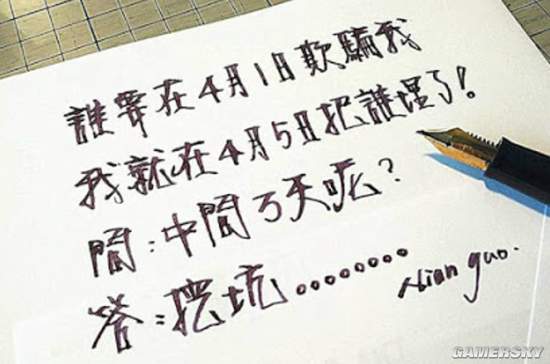 誰要在4月1日欺騙我
我就在4月5日把誰埋了!
問:中間3天呢?
答:挖坑........
Nian guo.
GAMERSKY